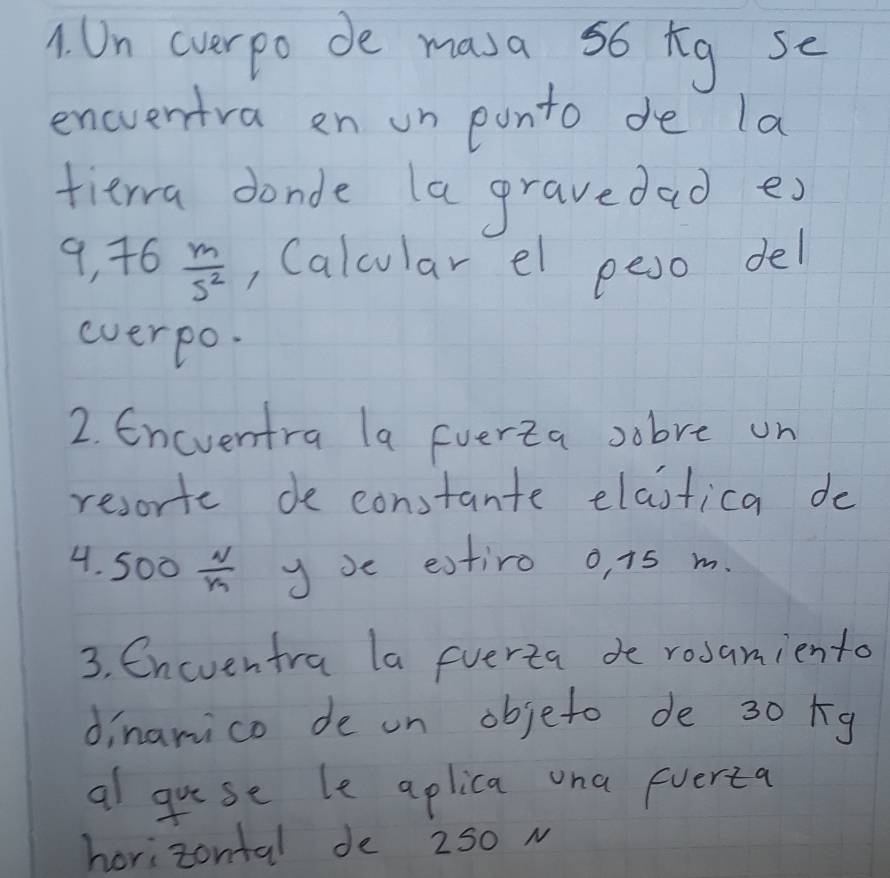 1. Un cuerpo de masa 56 Kg se
encuentra en un punto de la
tierra donde la gravedad es
9,76 m/s², Calcular el peso del
cuerpo.
2. Encuentra la fuerza sobre un
resorte de constante elástica de
4.500 N/m y se estiro 0,15 m.
3. Encuentra la fuerza de rosamiento
dínamico de un objeto de 30 Kg
al que se le aplica una fuerza
horizontal de 250 N